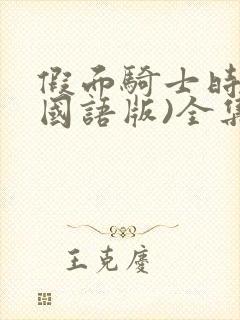 假面騎士時
國語版)全集
王克慶